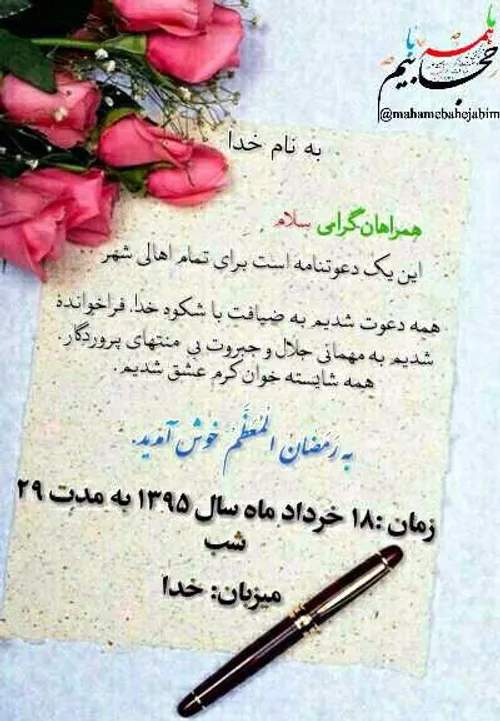 با
همه
با
حجابیم
@mahamebahejabim
به نام خدا
همراهان گرامی سلام
این یک دعوتنامه است برای تمام اهالی شهر
همه دعوت شدیم به ضیافت با شکوه خدا. فراخوانده
شدیم به مهمانی جلال و جبروت بی منتهای پروردگار.
همه شایسته خوان کرم عشق شدیم.
به رَمَضان المُعَظَّمْ خوش آمدید.
زمان :۱۸ خرداد ماه سال ۱۳۹۵ به مدت ۲۹
شب
میزبان: خدا